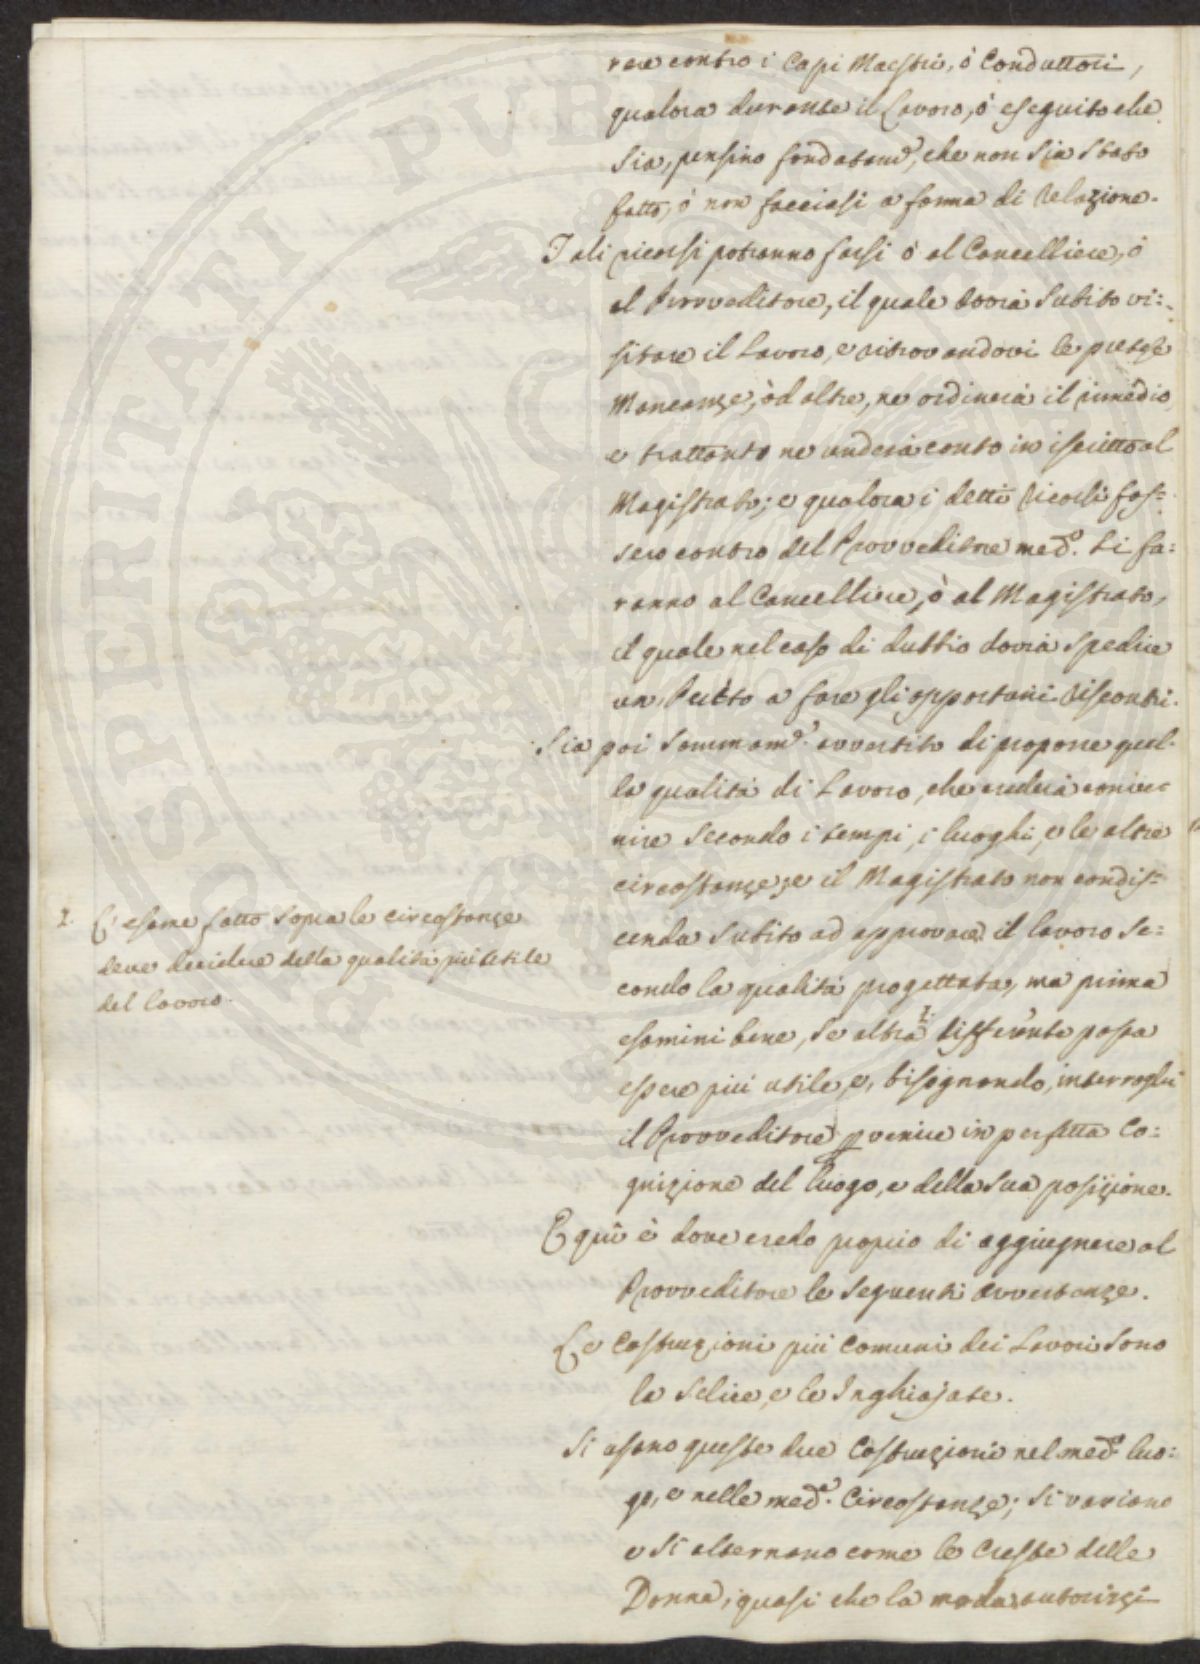 rere contro i Capi Maestri, ò Conduttori,
qualora durante il Lavoro, ò eseguito che
sia, pensino fondatamᵉ, che non sia stato
fatto, ò non facciasi a forma di relazione.
Tali ricorsi potranno farsi ò al Cancelliere, ò
al Provveditore, il quale dovrà subito vi=
sitare il Lavoro, e ritrovandovi le pretese
Mancanze, òd altre, ne ordinerà il rimedio,
e trattanto ne renderà conto in iscritto al
Magistrato; e qualora i detti ricorsi fos=
sero contro del Provveditore medᵒ. si fa=
ranno al Cancelliere, ò al Magistrato,
il quale nel caso di dubbio dovrà spedire
un Perito a fare gli opportuni riscontri.
Sia poi sommamᵉ. avvertito di proporre quel-
la qualità di Lavoro, che crederà conve-
nire secondo i tempi, i luoghi, e le altre
circostanze; e il Magistrato non condis=
cenda subito ad approvare il lavoro se=
condo la qualità progettata, ma prima
esamini bene, se altra 1. differente possa
essere più utile, e, bisognando, interroghi
il Provveditore p venire in perfetta co=
gnizione del luogo, e della sua posizione.
E quì è dove credo proprio di aggiugnere al
Provveditore le seguenti avvertenze.
Le Costruzioni più comuni dei Lavori sono
la selice, e le Inghiajate.
Si usano queste due Costruzioni nel medᵒ. luo=
go, e nelle medᵉ. Circostanze; si variano
e si alternano come le Creste delle
Donne, quasi che la moda autorizzi
1. L'esame fatto sopra le circostanze
deve decidere della qualità più utile
del lavoro.
PROSPERITATI PUBL